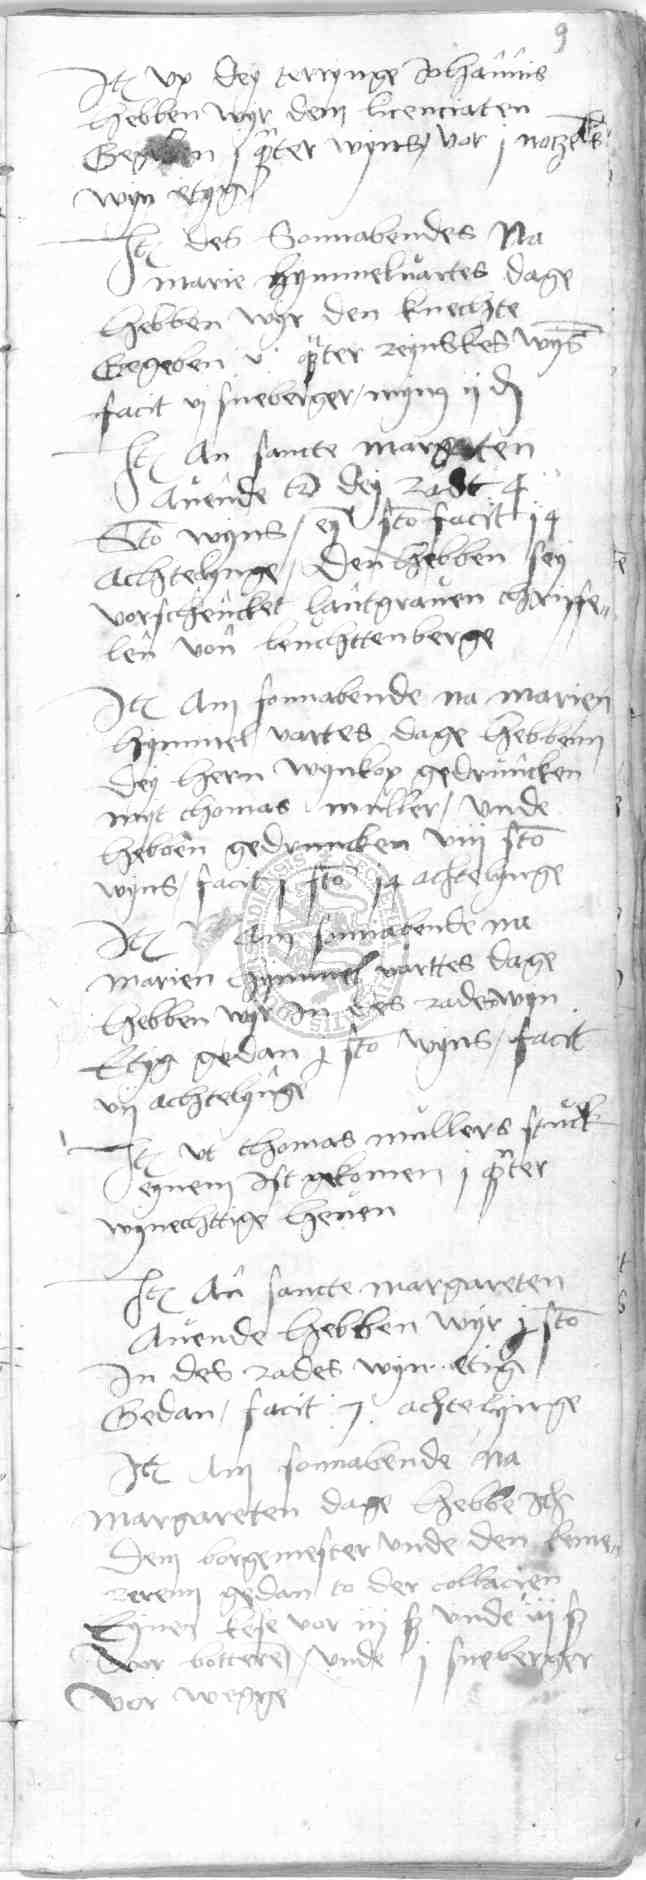 9
Itz vp dey terrynge Johannis
hebben wyr dem licenciaten
Gegeben j qrter wyns / vor j notzels
wyn etyg
Itz des Sonnabendes Na
marie hymmeluartes dage
hebben wyr den knechte
Gegeben v qrter reynskes wyns
facit vj sneberger / myn9 ij d
Itz An sancte margreten
Auende dey radt 4
Sto wyns / eyn sto facit j4
Achtelynge / Den hebben sey
vorschencket lantgrauen christffe„
len von leuchttenberge
Itz Am sonnabende na marien
hymmel vartes dage hebbenn
dey hern wynkop gedruncken
myt thomas muller / vnde
hebben gedruncken viij sto
wyns / facit j sto j4 achtelynge
Itz Am sonnabende na
marien hymmel varttes dage
hebben wyr In des rades wyn
Etyg gedan j sto wyns / facit
vij achtelynge
Itz vt thomas mullers stuck
eynem Ist gekomen j qrter
wynechttige heuen
Itz An sancte margareten
Auende hebben wyr j sto
In des rades wyn etig
Gedan / facit 7 achtelynge
Itz Am sonnabende na
margareten dage hebbe Ich
dem borgemester vnde den keme„
rerenn gedan to der collacien
Eynen kese vor iij ß vnde iij ß
vor botteren / vnde j sneberger
vor wegge